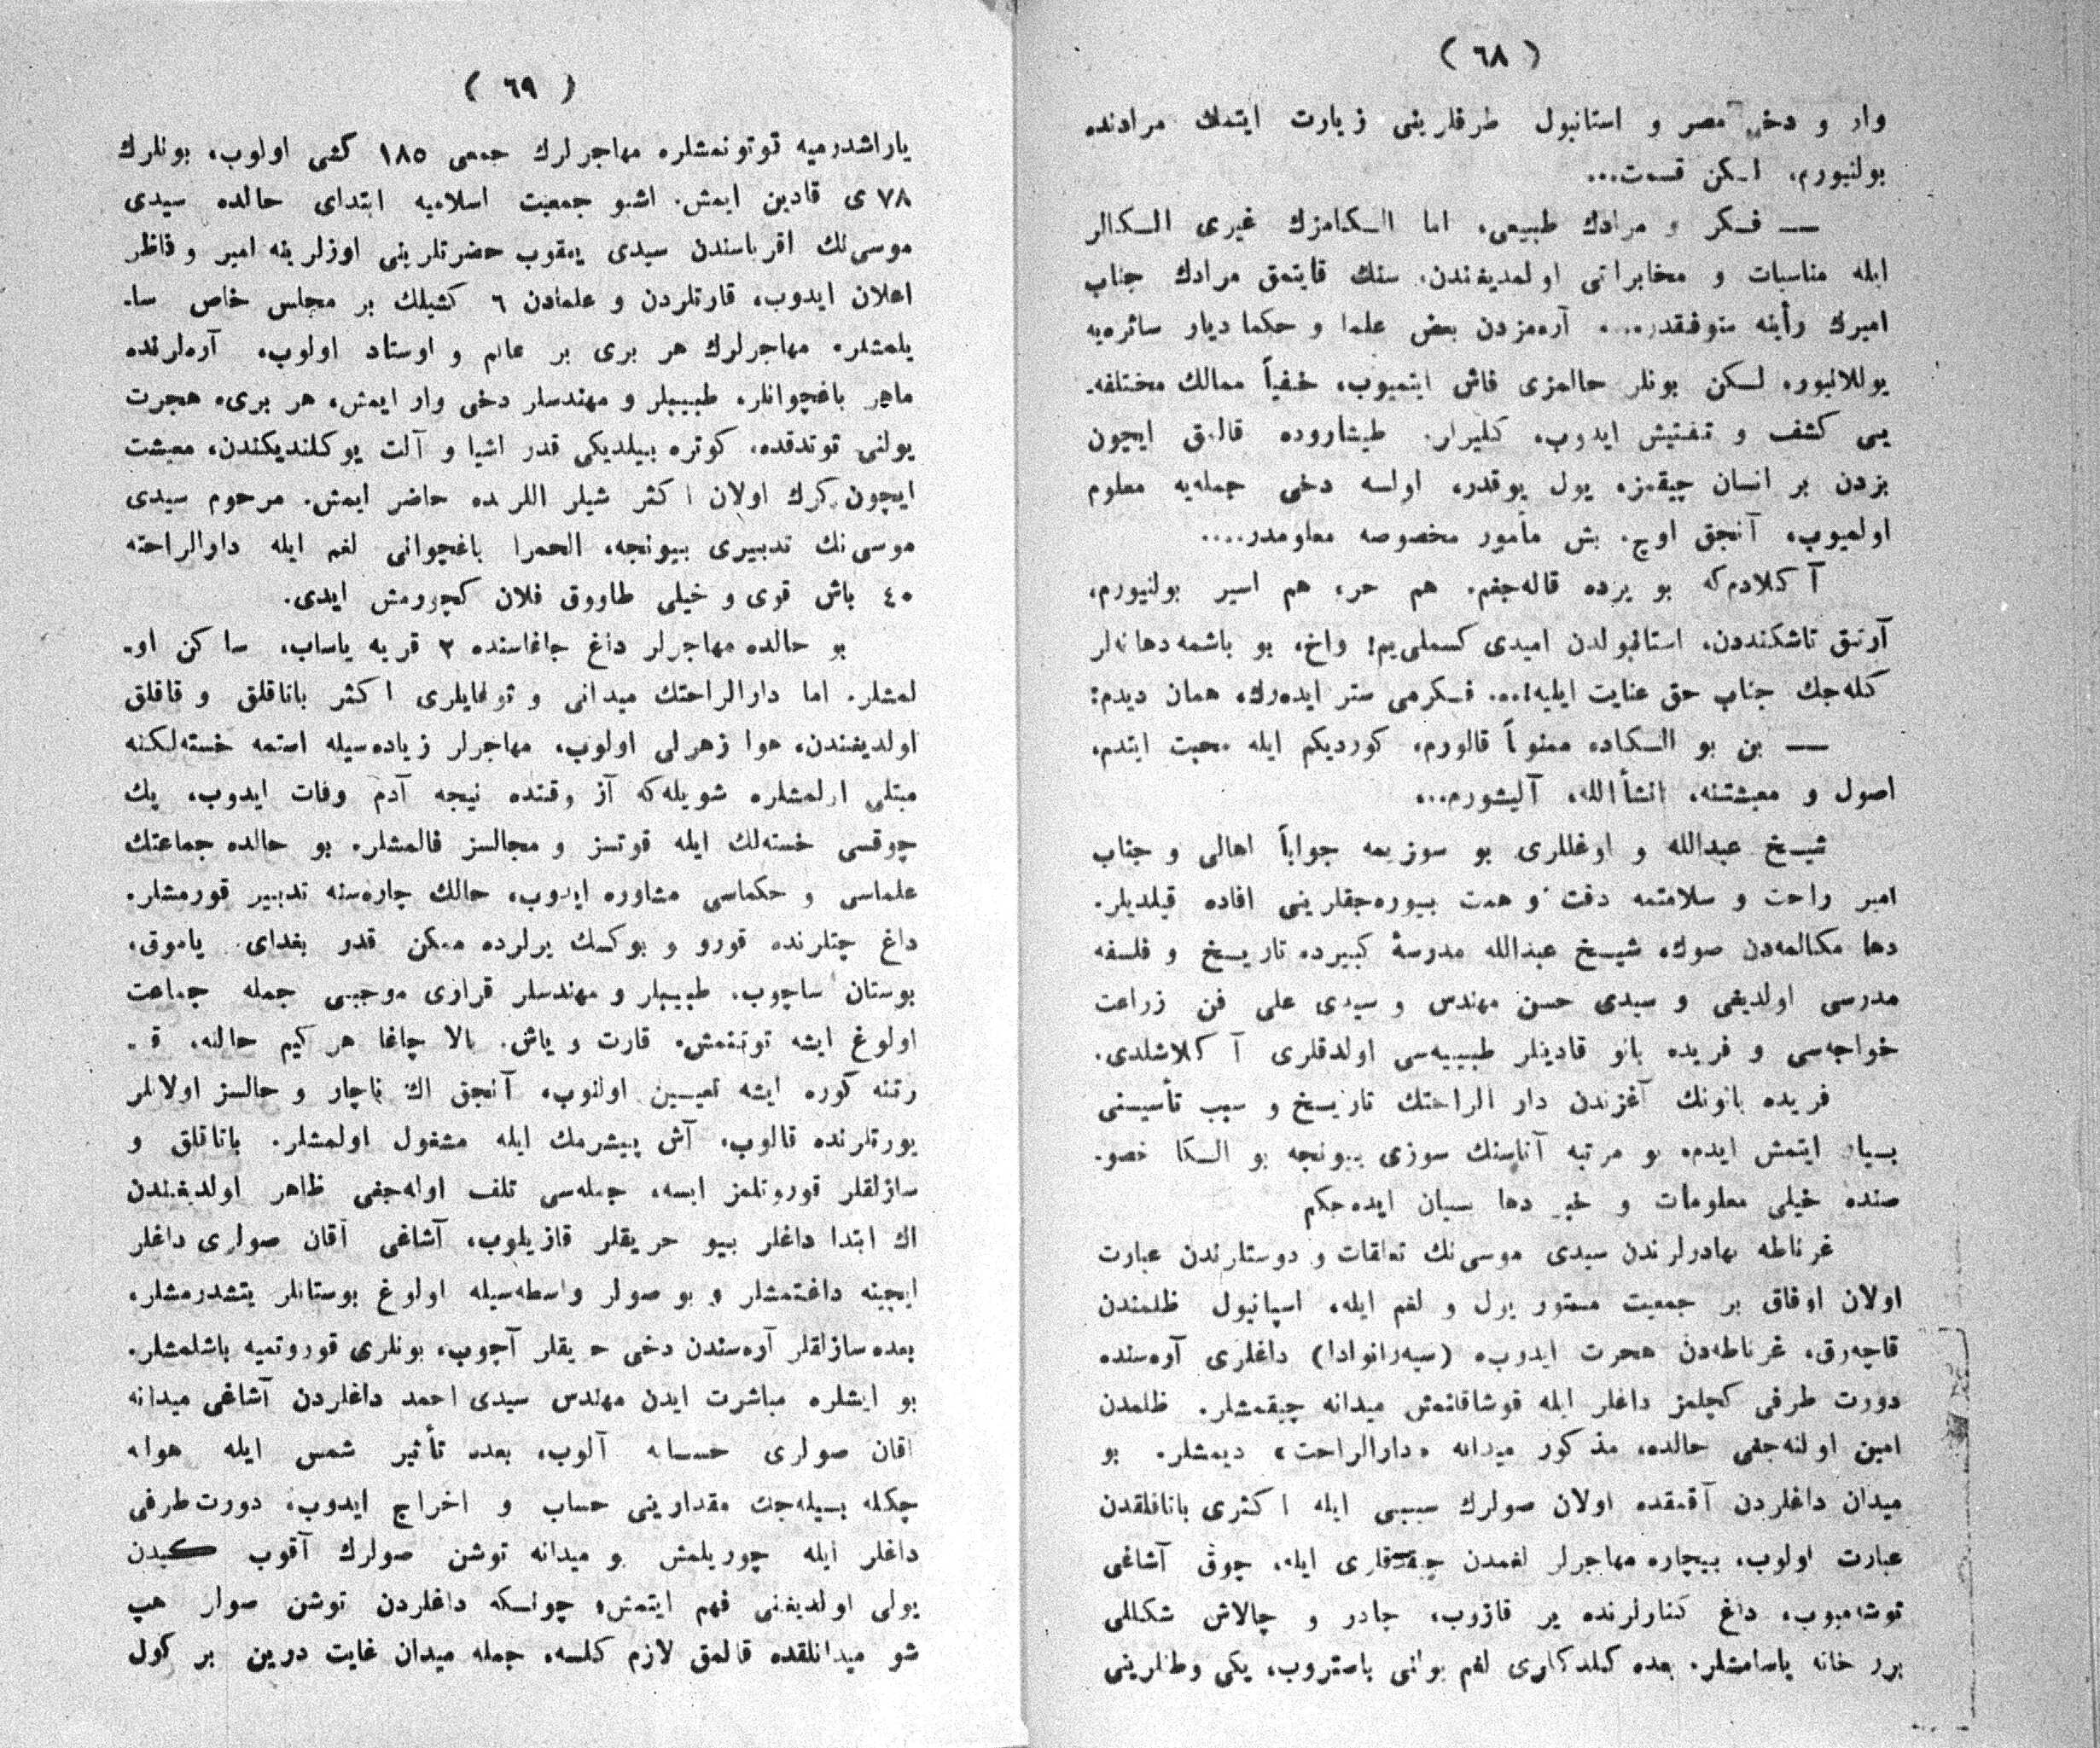 ( ٦٨ )
وار و دخی مصر و استانبول طرفلرینی زیارت ایتمك مرادنده
بولنیورم، لـکن قسمت...
— فـکر و مرادك طبیعی، اما الـکامزك غیری الـکالر
ایله مناسبات و مخابراتی اولمدیغندن، سنك قایتمق مرادك جناب
امیرك رأینه متوقفدر.... آره‌مزدن بعض علما و حکما دیار سائره‌یه
یوللانیور، لـکن بونلر حالمزی فاش ایتمیوب، خفیاً ممالك مختلفه‌ـ
یی کشف و تفتیش ایدوب، کلیرلر. طیشاروده قالمق ایچون
بزدن بر انسان چیقمز، یول یوقدر، اولسه دخی جمله‌یه معلوم
اولمیوب، آنجق اوچ ـ بش مأمور مخصوصه معلومدر....
آکلادم‌که بو یرده قاله‌جغم. هم حر، هم اسیر بولنیورم،
آرتق تاشکنددن، استانبولدن امیدی کسملی‌یم! واخ، بو باشمه دها نه‌لر
کله‌جك جناب حق عنایت ایلیه!... فـکرمی ستر ایده‌رك، همان دیدم:
— بن بو الـکاده ممنوناً قالورم، کوردیکم ایله محبت ایتدم،
اصول و معیشتنه، انشأالله، آلیشورم...
شیـخ عبدالله و اوغللری بو سوزیمه جواباً اهالی و جناب
امیر راحت و سلامتمه دقت و همت بیوره‌جقلرینی افاده قیلدیلر.
دها مکالمه‌دن صوك، شیـخ عبدالله مدرسهٔ کبیرده تاریـخ و فلسفه
مدرسی اولدیغی و سیدی حسن مهندس و سیدی علی فن زراعت
خواجه‌سی و فریده بانو قادینلر طبیبه‌سی اولدقلری آکلاشلدی.
فریده بانونك آغزندن دار الراحتك تاریـخ و سبب تأسیسنی
بسیان ایتمش ایدم، بو مرتبه آناسنك سوزی بیونجه بو الـکا خصوـ
صنده خیلی معلومات و خبر دها بسیان ایده‌جکم
غرناطه بهادرلرندن سیدی موسی‌نك تعلقات و دوستلرندن عبارت
اولان اوفاق بر جمعیت مستور یول و لغم ایله، اسپانیول ظلمندن
قاچه‌رق، غرناطه‌دن هجرت ایدوب، (سیه‌رانوادا) داغلری آره‌سنده
دورت طرفی کچلمز داغلر ایله قوشاقانمش میدانه چیقمشلر. ظلمدن
امین اولنه‌جغی حالده، مذکور میدانه «دارالراحت» دیمشلر. بو
میدان داغلردن آقمقده اولان صولرك سببی ایله اکثری باتاقلقدن
عبارت اولوب، بیچاره مهاجرلر لغمدن چیقدقلری ایله، چوق آشاغی
توشامیوب، داغ کنارلرنده یر قازوب، چادر و چالاش شکللی
برر خانه یاسامشلر. بعده کلدکلری لغم یولنی باستروب، یکی وطنلرینی
( ٦٩ )
یاراشدرمیه توتونمشلر، مهاجرلرك جمعی ١٨٥ کشی اولوب، بونلرك
٧٨ ی قادین ایمش. اشبو جمعیت اسلامیه ابتدای حالده سیدی
موسی‌نك اقرباسندن سیدی یعقوب حضرتلرینی اوزلرینه امیر و ناظر
اعلان ایدوب، قارتلردن و علمادن ٦ کشیلك بر مجلس خاص ساـ
یلمشلر، مهاجرلرك هر بری بر عالم و اوستاد اولوب، آره‌لرنده
ماهر باغچوانلر، طبیبلر و مهندسلر دخی وار ایمش، هر بری، هجرت
یولنی توتدقده، کوتره بیلدیکی قدر اشیا و آلت یوکلندیکندن، معیشت
ایچون کرك اولان اکثر شیلر اللرنده حاضر ایمش. مرحوم سیدی
موسی‌نك تدبیری بیونجه، الحمرا باغچوانی لغم ایله دارالراحته
٤٠ باش قوی و خیلی طاووق فلان کچورمش ایدی.
بو حالده مهاجرلر داغ جاغاسنده ٢ قریه یاساب، ساکن اوـ
لمشلر. اما دارالراحتك میدانی و توغایلری اکثر باتاقلق و قاقلق
اولدیغندن، هوا زهرلی اولوب، مهاجرلر زیاده‌سیله استمه خسته‌لکنه
مبتلی اولمشلر، شویله‌که آز وقتده نیجه آدم وفات ایدوب، پك
چوقسی خسته‌لك ایله قوتسز و مجالسز قالمشلر. بو حالده جماعتك
علماسی و حکماسی مشاوره ایدوب، حالك چاره‌سنه تدبیر قورمشلر.
داغ چتلرنده قورو و یوکسك یرلرده ممکن قدر بغدای، یاموق،
بوستان ساچوب، طبیبلر و مهندسلر قراری موجبی جمله جماعت
اولوغ ایشه توتنمش. قارت و یاش، بالا چاغا هر کیم حالنه، قـ
رتنه کوره ایشه تعیـین اولنوب، آنجق اك ناچار و حالسز اولانلر
یورتلرنده قالوب، آش پیشرمك ایله مشغول اولمشلر. باتاقلق و
سازلقلر قوروتلمز ایسه، جمله‌سی تلف اوله‌جغی ظاهر اولدیغندن
اك ابتدا داغلر بیو حریقلر قازیلوب، آشاغی آقان صولری داغلر
ایچینه داغتمشلر و بو صولر واسطه‌سیله اولوغ بوستانلر یتشدرمشلر،
بعده سازلقلر آره‌سندن دخی حریقلر آچوب، بونلری قوروتمیه باشلمشلر.
بو ایشلره مباشرت ایدن مهندس سیدی احمد داغلردن آشاغی میدانه
آقان صولری حسابه آلوب، بعده تأثیر شمس ایله هوایه
چکله بسیله‌جك مقدارینی حساب و اخراج ایدوب، دورت طرفی
داغلر ایله چوریلمش بو میدانه توشن صولرك آقوب کیدن
یولی اولدیغنی فهم ایتمش، چونـکه داغلردن توشن صولر هپ
شو میدانلقده قالمق لازم کلسه، جمله میدان غایت درین بر کول